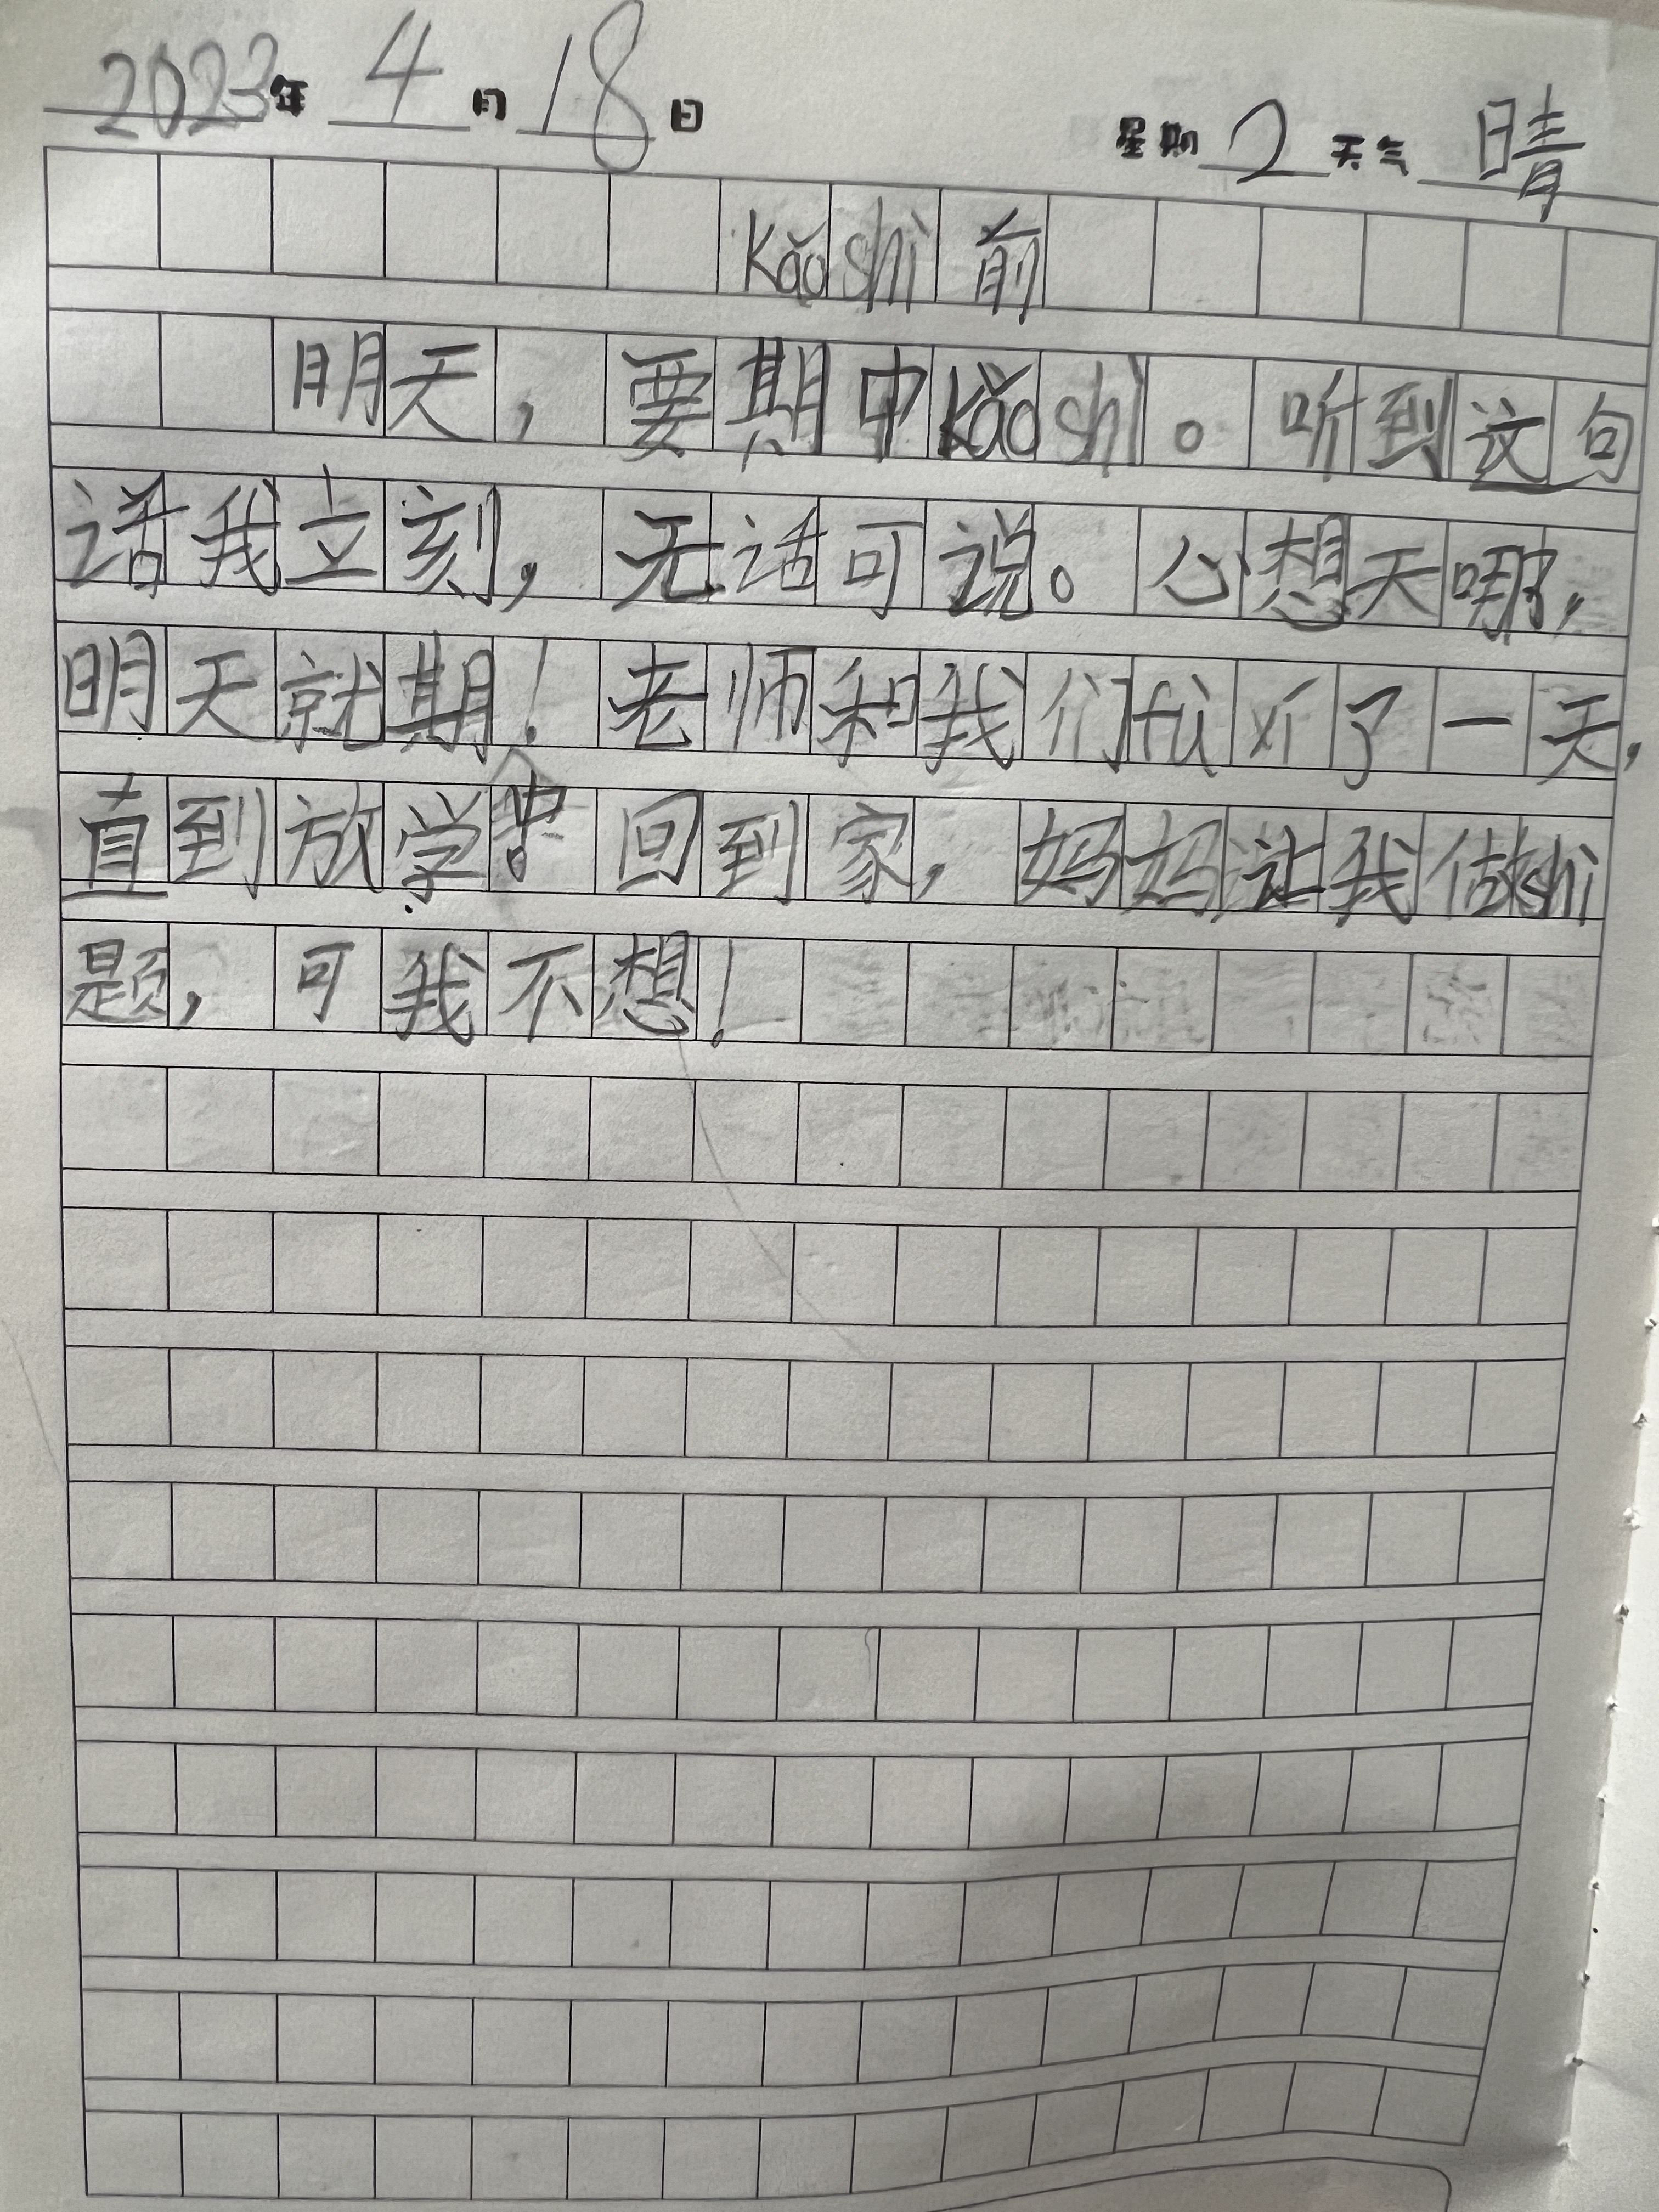 2023年 4月 18日 星期 2 天气 晴
kǎo shì 前
明天，要期中kǎo shì。听到这句
话我立刻，无话可说。心想天哪，
明天就期！老师和我们fù xí了一天，
直到放学！回到家，妈妈让我做shì
题，可我不想！